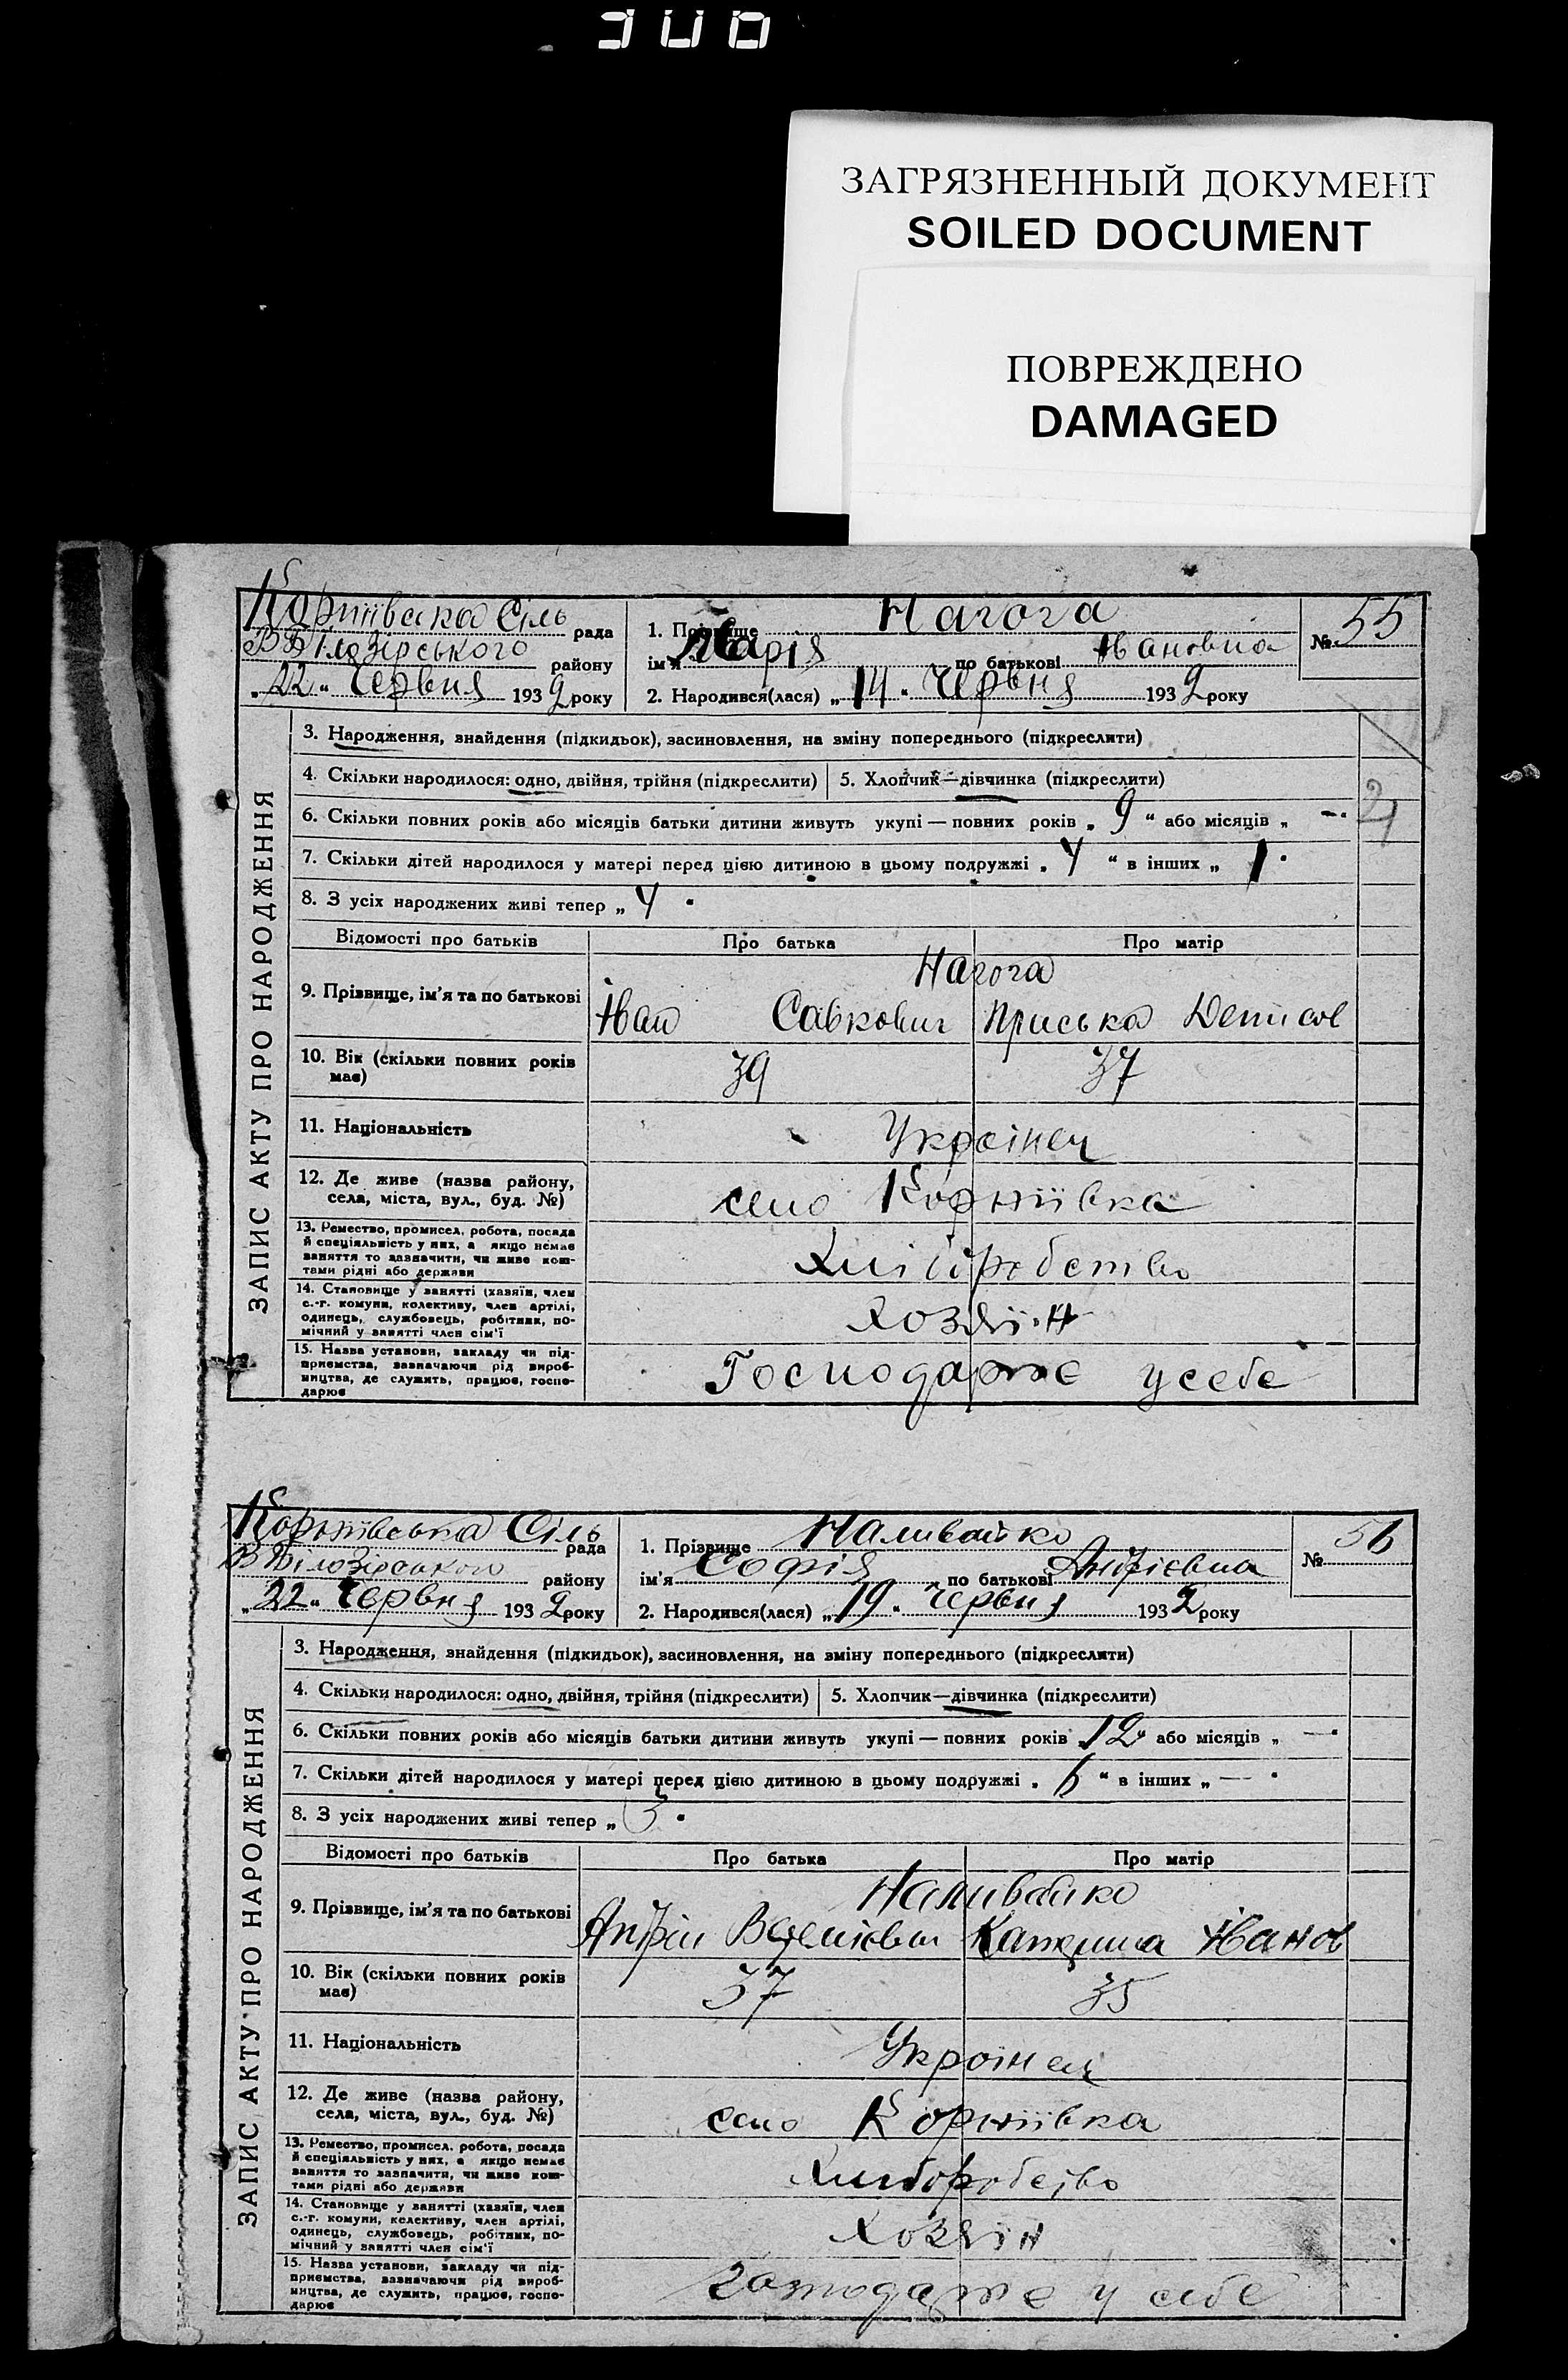 300
ЗАГРЯЗНЕННЫЙ ДОКУМЕНТ
SOILED DOCUMENT
ПОВРЕЖДЕНО
DAMAGED
Корніївська Сіль рада
В Білозірського району
„22“ Червня 1932 року
1. Прізвище Нагога
ім'я Марія по батькові Івановна
2. Народився(лася) „14“ Червня 1932 року
№ 55
ЗАПИС АКТУ ПРО НАРОДЖЕННЯ
3. Народження, знайдення (підкидьок), засиновлення, на зміну попереднього (підкреслити)
4. Скільки народилося: одно, двійня, трійня (підкреслити) 5. Хлопчик—дівчинка (підкреслити)
6. Скільки повних років або місяців батьки дитини живуть укупі — повних років „9“ або місяців „ —
7. Скільки дітей народилося у матері перед цією дитиною в цьому подружжі „4“ в інших „ 1
8. З усіх народжених живі тепер „ 4
Відомості про батьків Про батька Про матір
Нагога
9. Прізвище, ім'я та по батькові Іван Савкович Приська Денисов
10. Вік (скільки повних років має) 39 37
11. Національність Українец
12. Де живе (назва району, села, міста, вул., буд. №) село Корніївка
13. Ремество, промисел, робота, посада й спеціяльність у них, а якщо немає заняття то зазначити, чи живе коштами рідні або держави Хліборобство
14. Становище у занятті (хазяїн, член с.-г. комуни, колективу, член артілі, одинець, службовець, робітник, помічний у занятті член сім'ї Хозяін
15. Назва установи, закладу чи підприємства, зазначаючи рід виробництва, де служить, працює, господарює Господарює у себе
Корніївська Сіль рада
В Білозірського району
„22“ Червня 1932 року
1. Прізвище Наливайко
ім'я Софія по батькові Андрієвна
2. Народився(лася) „19“ Червня 1932 року
№ 56
ЗАПИС АКТУ ПРО НАРОДЖЕННЯ
3. Народження, знайдення (підкидьок), засиновлення, на зміну попереднього (підкреслити)
4. Скільки народилося: одно, двійня, трійня (підкреслити) 5. Хлопчик—дівчинка (підкреслити)
6. Скільки повних років або місяців батьки дитини живуть укупі — повних років „12“ або місяців „ —
7. Скільки дітей народилося у матері перед цією дитиною в цьому подружжі „6“ в інших „ —
8. З усіх народжених живі тепер „ 3
Відомості про батьків Про батька Про матір
Наливайко
9. Прізвище, ім'я та по батькові Андрій Катерина Іванов
10. Вік (скільки повних років має) 37 35
11. Національність Українец
12. Де живе (назва району, села, міста, вул., буд. №) село Корніївка
13. Ремество, промисел, робота, посада й спеціяльність у них, а якщо немає заняття то зазначити, чи живе коштами рідні або держави Хліборобство
14. Становище у занятті (хазяїн, член с.-г. комуни, колективу, член артілі, одинець, службовець, робітник, помічний у занятті член сім'ї Хозяін
15. Назва установи, закладу чи підприємства, зазначаючи рід виробництва, де служить, працює, господарює Господарює у себе